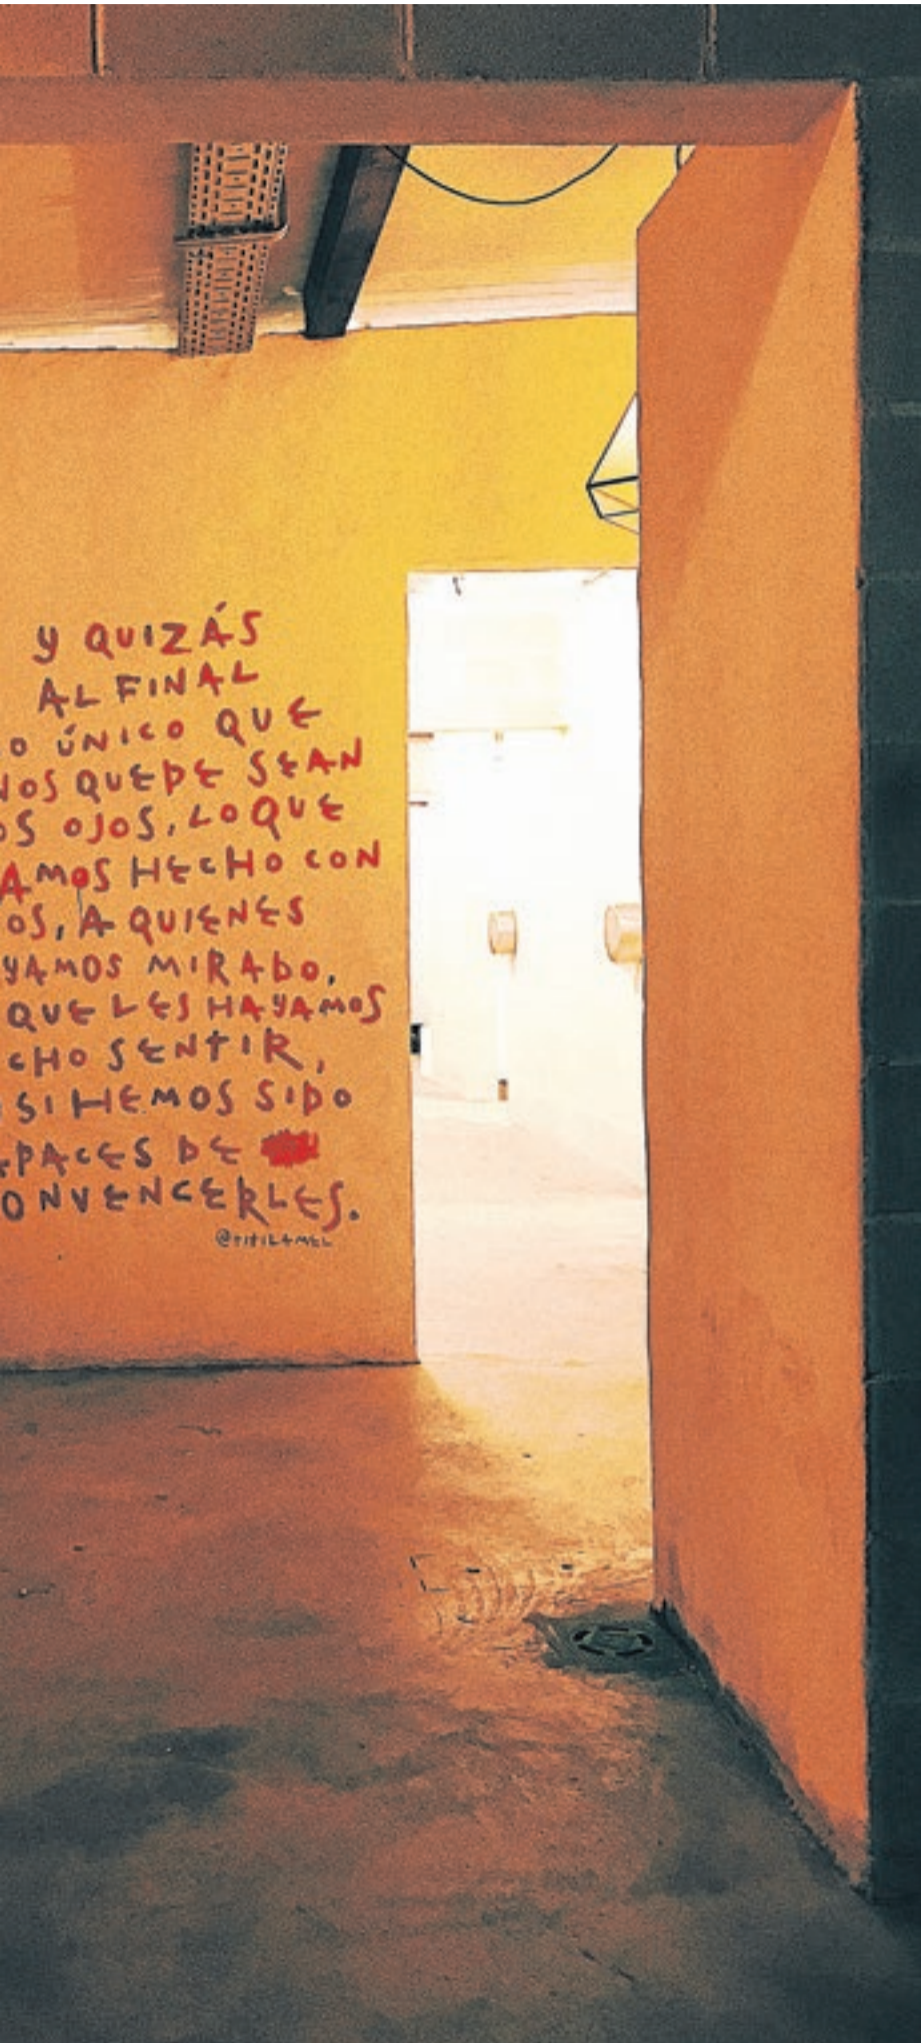 Y QUIZÁS
AL FINAL
O ÚNICO QUE
NOS QUEDE SEAN
OS OJOS, LO QUE
AMOS HECHO CON
OS, A QUIENES
YAMOS MIRADO,
QUE LES HAYAMOS
CHO SENTIR,
SI HEMOS SIDO
PACES DE
ONVENCERLES.